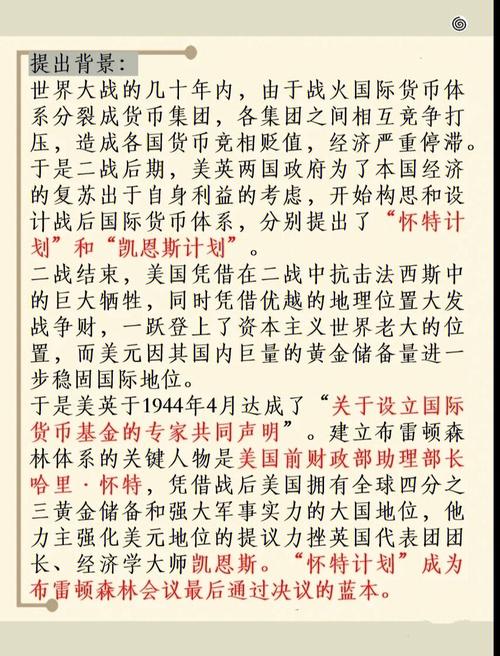 提出背景：
世界大战的几十年内，由于战火国际货币体
系分裂成货币集团，各集团之间相互竞争打
压，造成各国货币竞相贬值，经济严重停滞。
于是二战后期，美英两国政府为了本国经济
的复苏出于自身利益的考虑，开始构思和设
计战后国际货币体系，分别提出了“怀特计
划”和“凯恩斯计划”。
二战结束，美国凭借在二战中抗击法西斯中
的巨大牺牲，同时凭借优越的地理位置大发
战争财，一跃登上了资本主义世界老大的位
置，而美元因其国内巨量的黄金储备量进一
步稳固国际地位。
于是美英于1944年4月达成了“关于设立国际
货币基金的专家共同声明”。建立布雷顿森
林体系的关键人物是美国前财政部助理部长
哈里·怀特，凭借战后美国拥有全球四分之
三黄金储备和强大军事实力的大国地位，他
力主强化美元地位的提议力挫英国代表团团
长、经济学大师凯恩斯。“怀特计划”成为
布雷顿森林会议最后通过决议的蓝本。